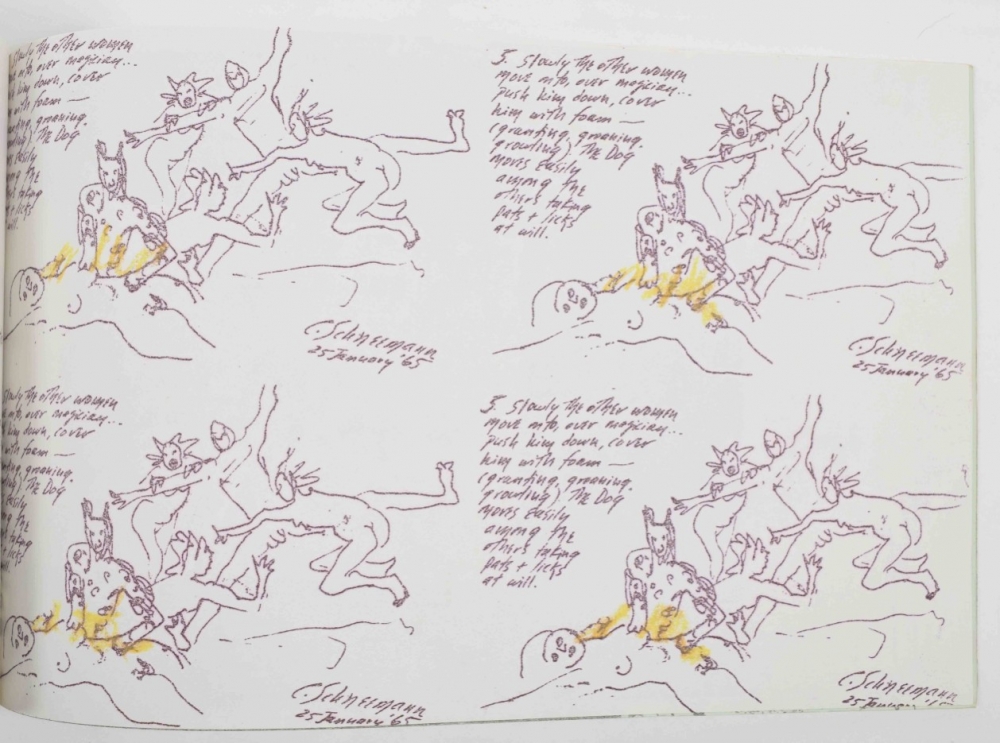 Slowly the other women
into, over magician...
him down, cover
with foam —
groaning.
The Dog
easily
the
taking
+ licks
will.
C. Schneemann
25 January '65
3. Slowly the other women
move into, over magician...
push him down, cover
him with foam —
(grunting, groaning.
growling) The Dog
moves easily
among the
others taking
pats + licks
at will.
C. Schneemann
25 January '65
Slowly the other women
into, over magician...
him down, cover
with foam —
groaning.
The Dog
easily
the
taking
+ licks
C. Schneemann
25 January '65
3. Slowly the other women
move into, over magician...
push him down, cover
him with foam —
(grunting, groaning.
growling) The Dog
moves easily
among the
others taking
pats + licks
at will.
C. Schneemann
25 January